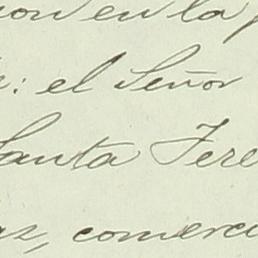 en la
: el Señor
Santa Tere
comerci